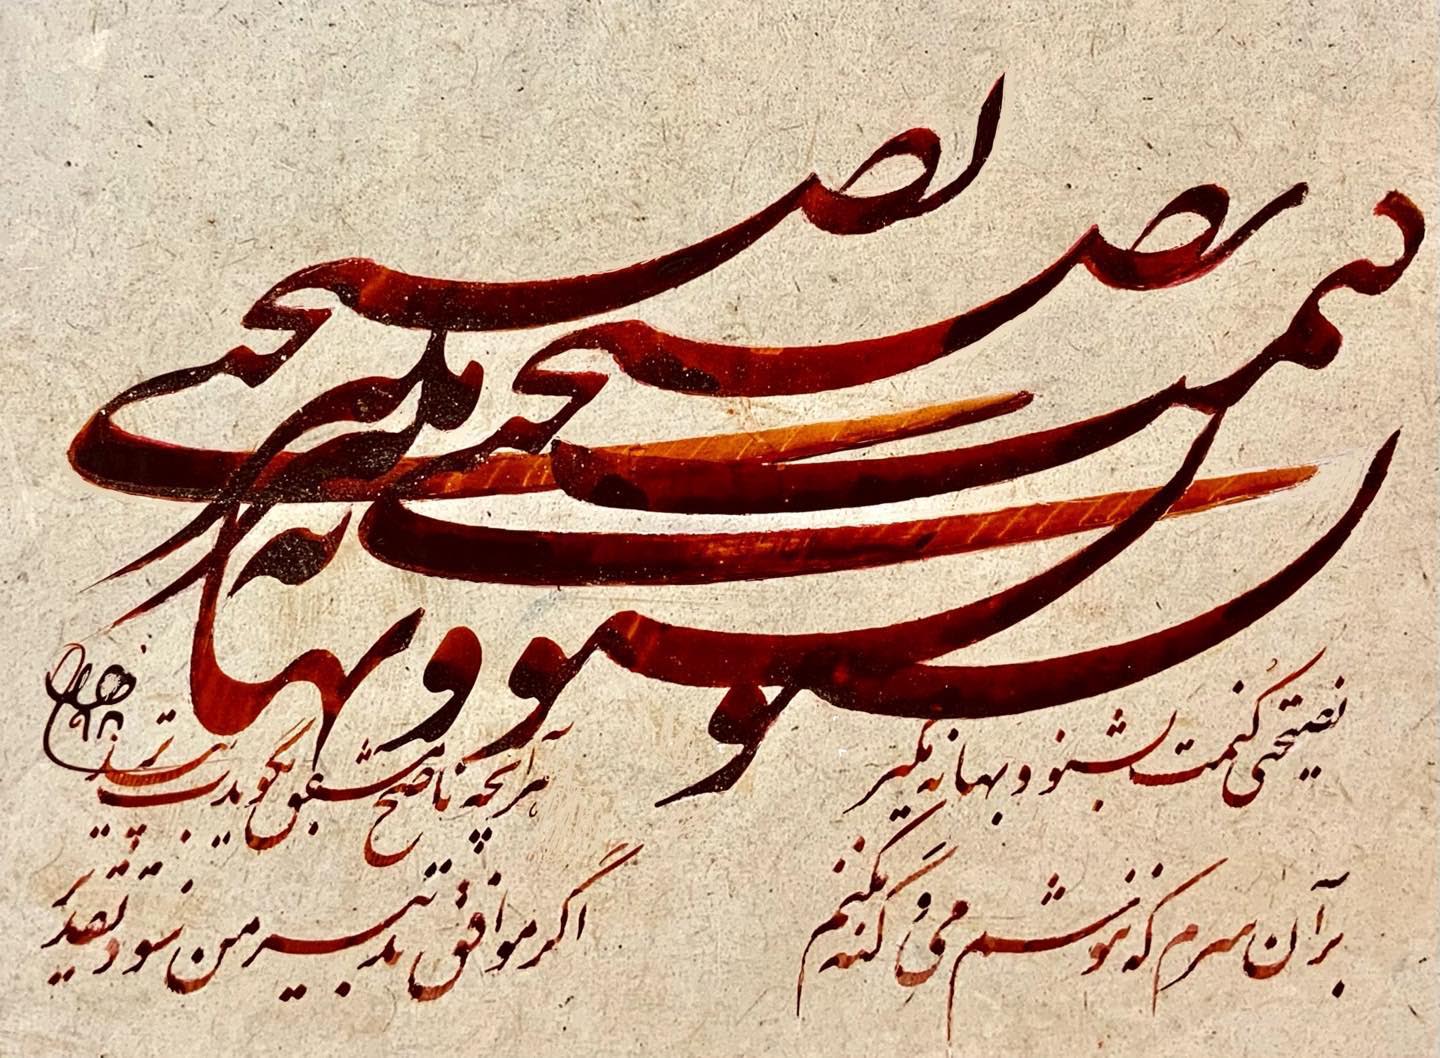 نصیحتی
نصیحتی
کنمت
بشنو و بهانه مگیر
نصیحتی کنمت بشنو و بهانه مگیر هر آنچه ناصح مشفق بگویدت بپذیر
بر آن سرم که ننوشم می و گنه نکنم اگر موافق تدبیر من شود تقدیر